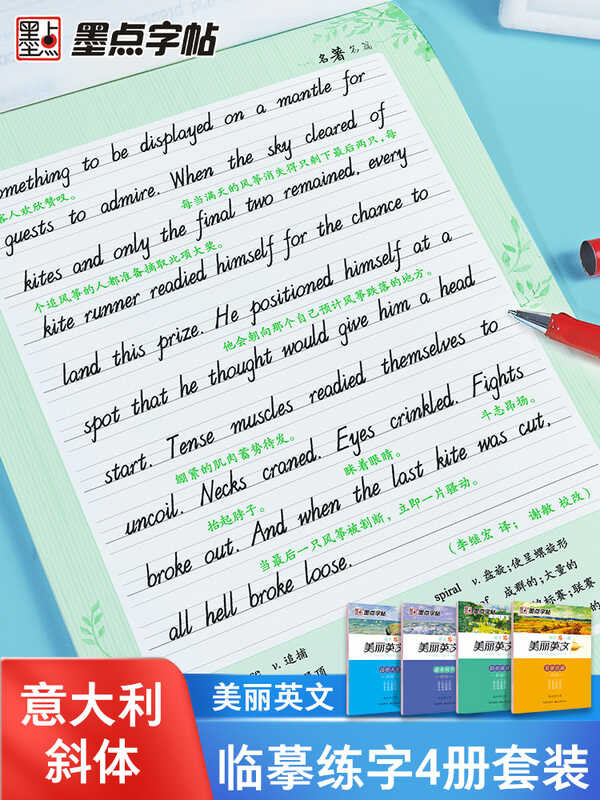 墨点 墨点字帖
名著名篇
omething to be displayed on a mantle for
客人欢欣赞叹。
guests to admire. When the sky cleared of
每当满天的风筝消失得只剩下最后两只,每
kites and only the final two remained, every
个追风筝的人都准备摘取此项大奖。
kite runner readied himself for the chance to
land this prize. He positioned himself at a
他会朝向那个自己预计风筝跌落的地方。
spot that he thought would give him a head
start. Tense muscles readied themselves to
绷紧的肌肉蓄势待发。
uncoil. Necks craned. Eyes crinkled. Fights
抬起脖子。 眯着眼睛。 斗志昂扬。
broke out. And when the last kite was cut,
当最后一只风筝被割断,立即一片骚动。
all hell broke loose.
(李继宏 译; 谢敏 校改)
spiral v.盘旋;使呈螺旋形
成群的;大量的
标赛;联赛
v.追捕
墨点字帖 墨点字帖 墨点字帖 墨点字帖
美丽英文 美丽英文 美丽英文 美丽英文
意大利
斜体
美丽英文
临摹练字4册套装